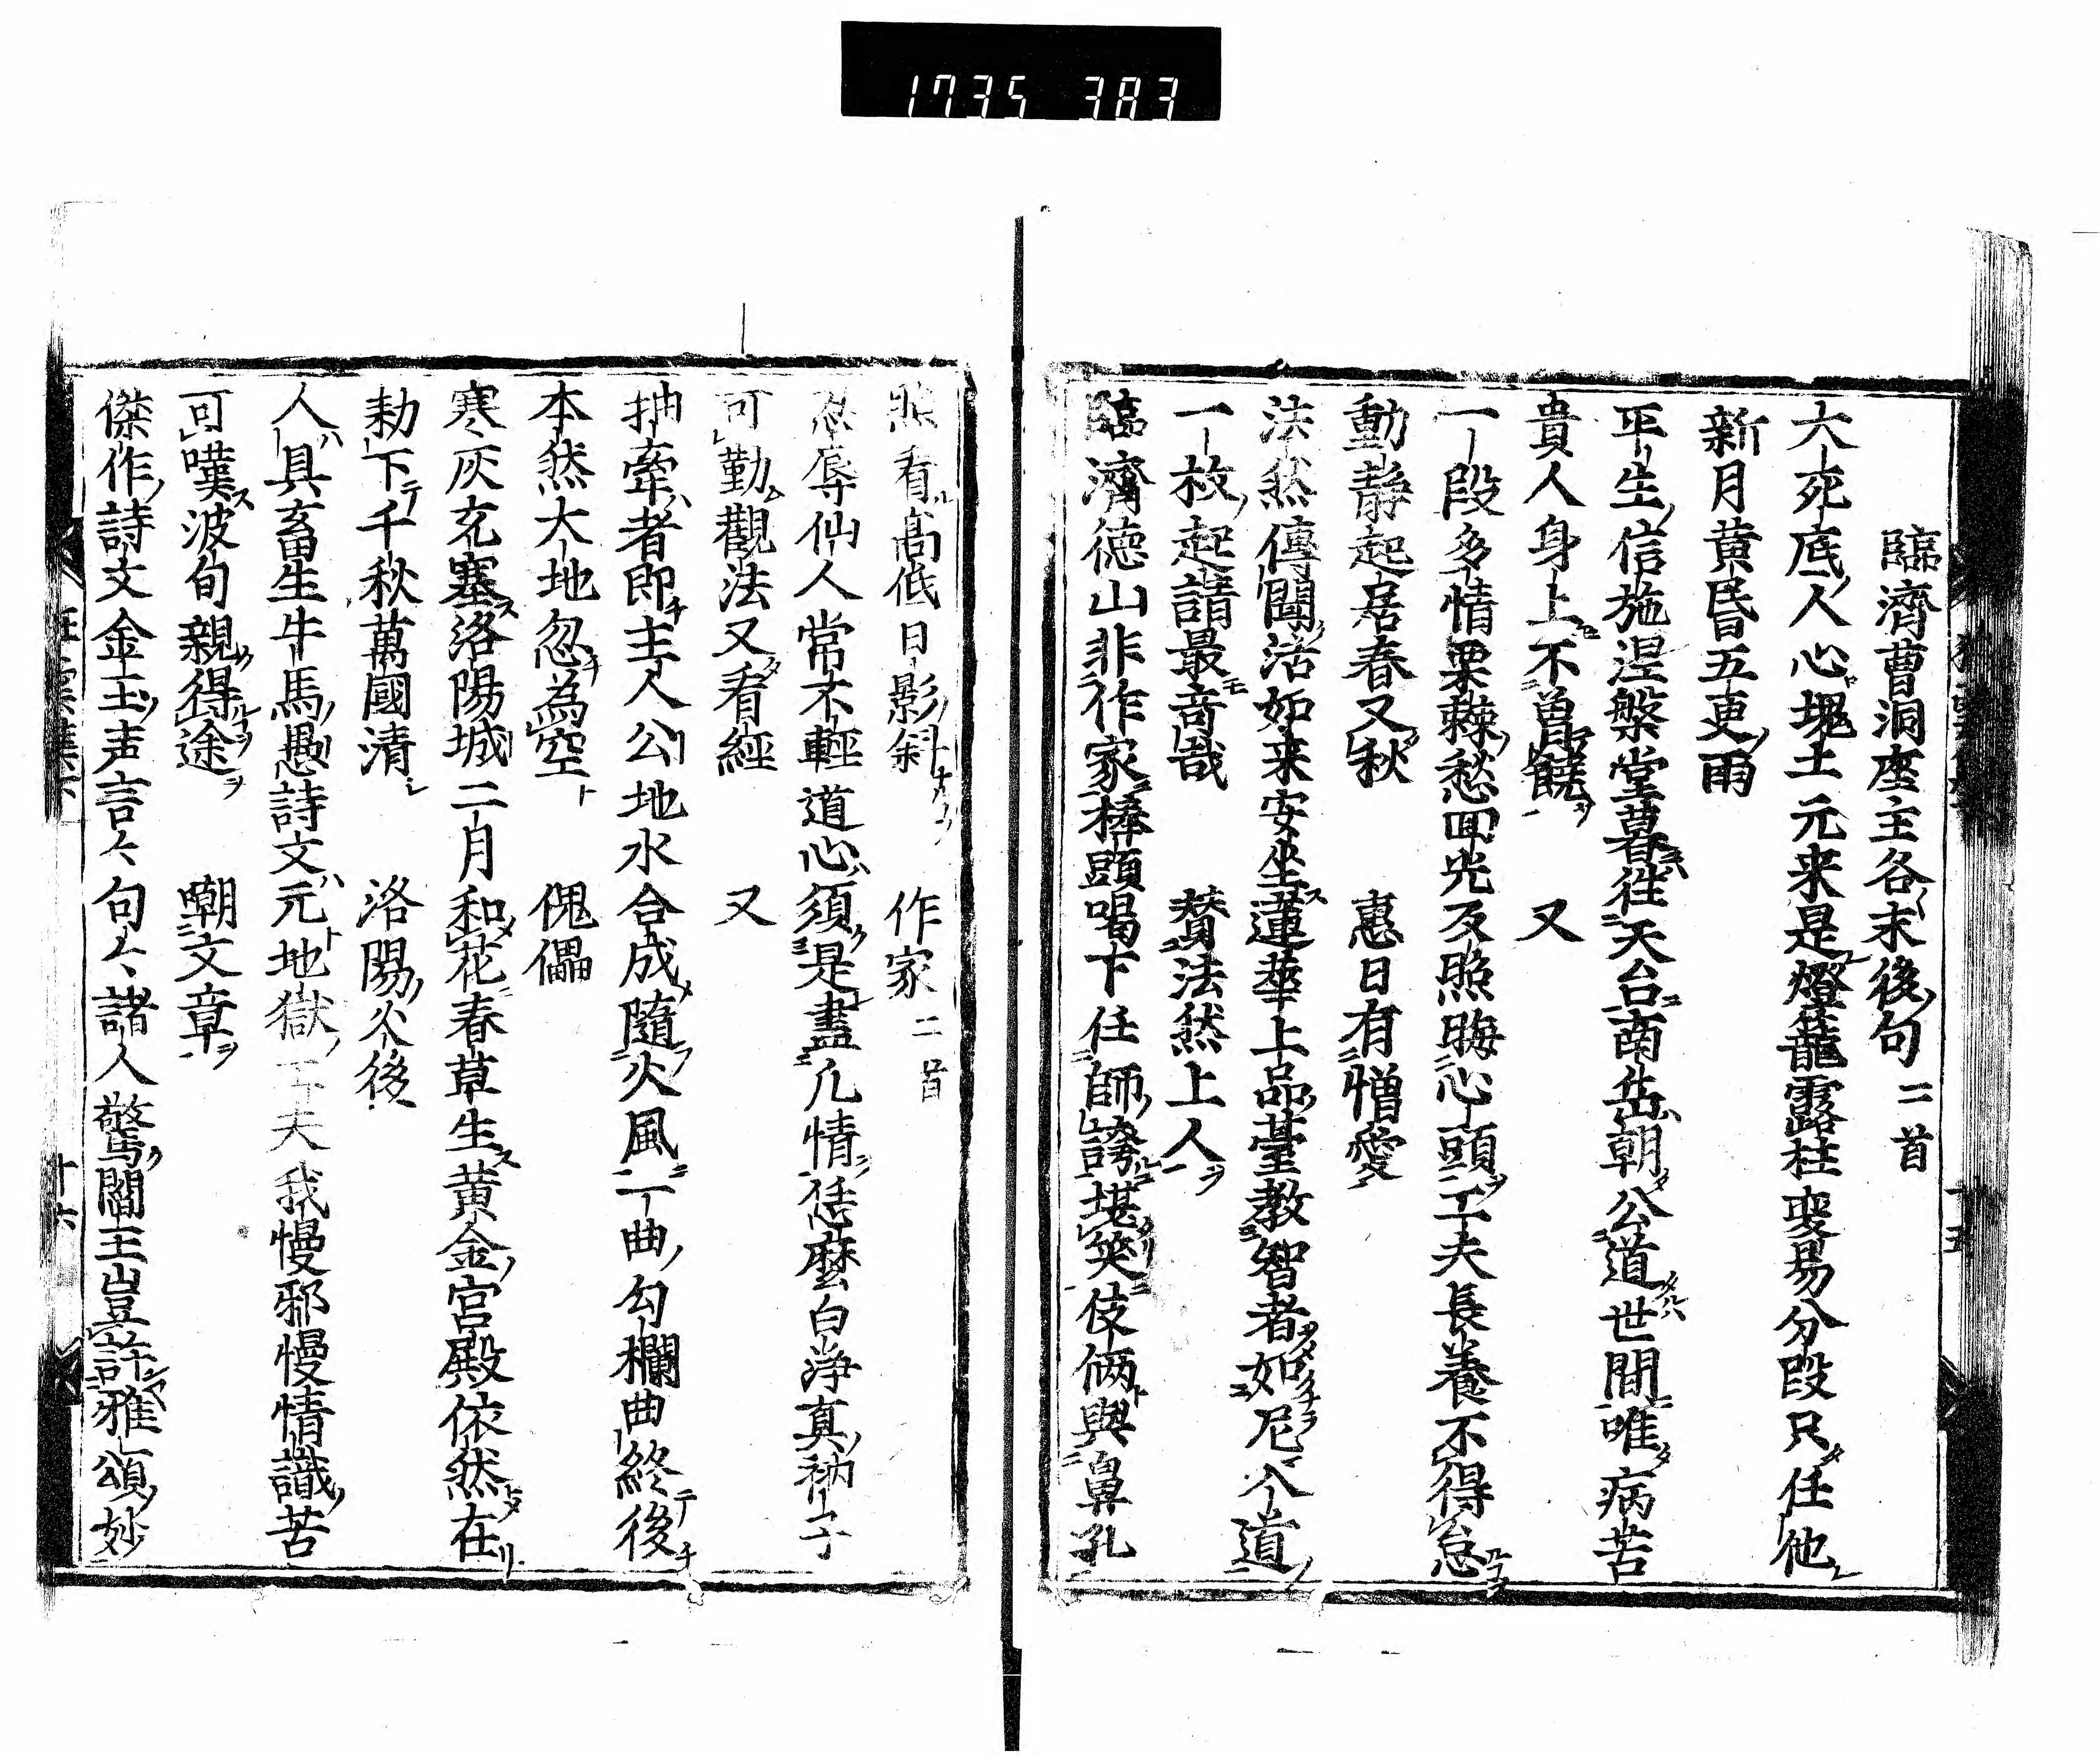 1735 383
臨濟曹洞座主各〻末後句 二首
大死底人心塊土元来是燈籠露柱変易分段只任他
新月黄昏五更雨
平生信施涅槃堂暮往天台南岳朝公道世間唯病苦
貴人身上不曽饒 又
一段多情栗棘愁回光反照晦心頭工夫長養不得怠
動静起居春又秋 惠日有憎愛
法然傳聞活如来安坐蓮華上品臺教智者如尼入道
一枚起請最奇哉 賛法然上人
臨濟徳山非作家棒頭喝下任師誇堪笑伎倆與鼻孔
照看髙低日影斜 作家 二首
忍辱仙人常不輕道心須是盡凡情恁麼白浄真衲子
可勤觀法又看經 又
抽牽者即主人公地水合成隨火風一曲勾欄曲終後
本然大地忽為空 傀儡
寒灰充塞洛陽城二月和花春草生黄金宮殿依然在
勅下千秋萬國清 洛陽火後
人具畜生牛馬愚詩文元地獄工夫我慢邪慢情識苦
可嘆波旬親得途 嘲文章
傑作詩文金玉声言〻句〻諸人驚閻王豈許雅頌妙
十六